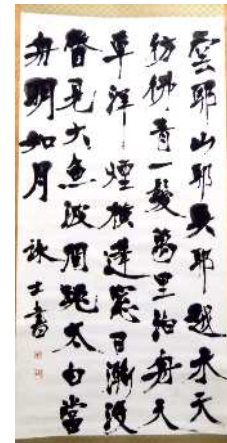 雲耶山耶呉耶越水天
彷佛青一髪萬里泊舟天
草洋煙横篷窓日漸没
瞥見大魚波間跳太白當
舟明如月 士書